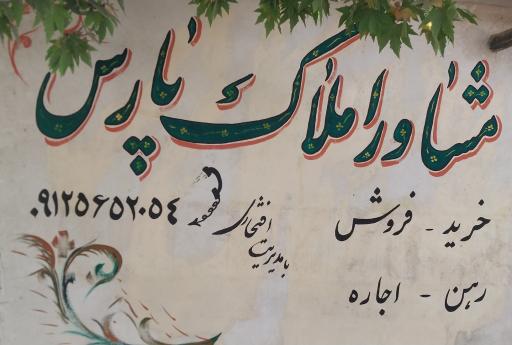 مشاور املاک پارس
خرید - فروش
رهن - اجاره
با مدیریت افتخاری
۰۹۱۲۵۶۵۲۰۵۴